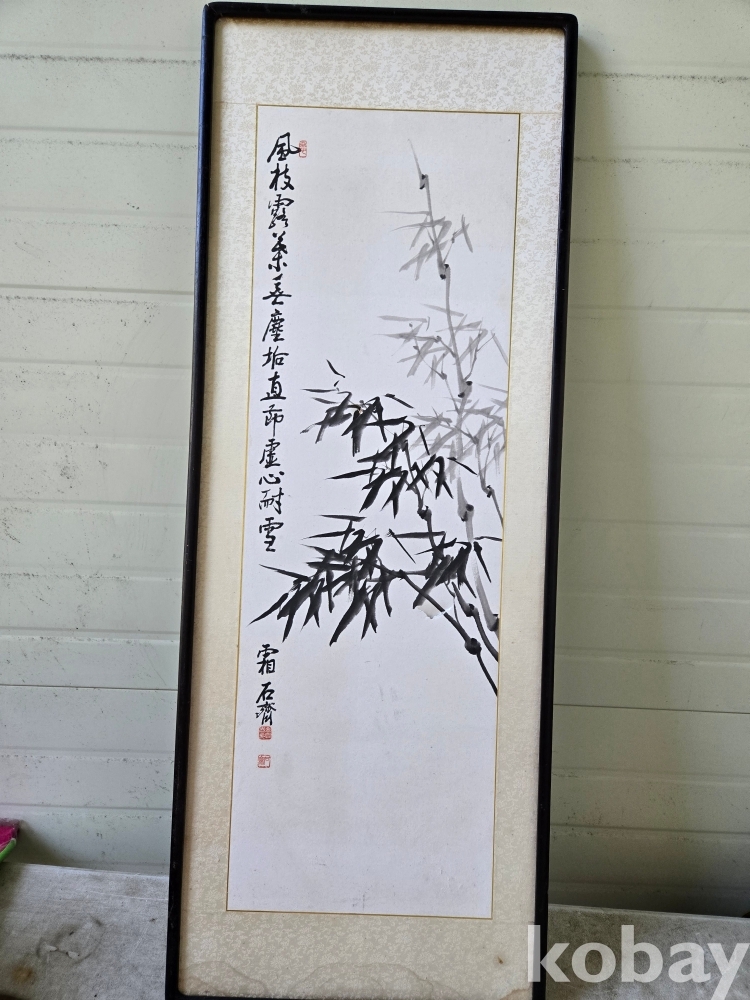 風枝露葉無塵垢直節虛心耐雪
霜 石齋
kobay